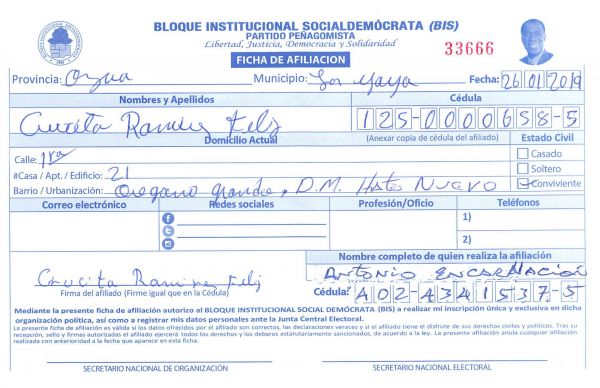 BLOQUE INSTITUCIONAL SOCIALDEMÓCRATA (BIS)
PARTIDO PEÑAGOMISTA
Libertad, Justicia, Democracia y Solidaridad
33666
FICHA DE AFILIACION
Provincia: Azua Municipio: Fecha: 26/01/2019
Nombres y Apellidos Cédula
Crucita Ramirez Feliz 125-0000658-5
Domicilio Actual (Anexar copia de cédula del afiliado) Estado Civil
Calle: 1ra Casado
#Casa / Apt. / Edificio: 21 Soltero
Barrio / Urbanización: Oregano grande, D.M. Hato Nuevo Conviviente
Correo electrónico Redes sociales Profesión/Oficio Teléfonos
1)
2)
Nombre completo de quien realiza la afiliación
Crucita Ramirez Feliz ANTONIO ENCARNACIÓN
Firma del afiliado (Firme igual que en la Cédula) Cédula: 402-4341537-5
Mediante la presente ficha de afiliación autorizo al BLOQUE INSTITUCIONAL SOCIAL DEMÓCRATA (BIS) a realizar mi inscripción única y exclusiva en dicha
organización política, así como a registrar mis datos personales ante la Junta Central Electoral.
La presente ficha de afiliación es válida si los datos ofrecidos por el afiliado son correctos, las declaraciones veraces y si el afiliado tiene el disfrute de sus derechos civiles y políticos. Tras su
recepción, sello y firmas autorizadas el afiliado ejercerá todos los derechos y los deberes estatutariamente sancionados, de acuerdo a la ley. La presente afiliación anula cualquier afiliación
realizada con anterioridad a la fecha que aparece en esta ficha.
SECRETARIO NACIONAL DE ORGANIZACIÓN SECRETARIO NACIONAL ELECTORAL